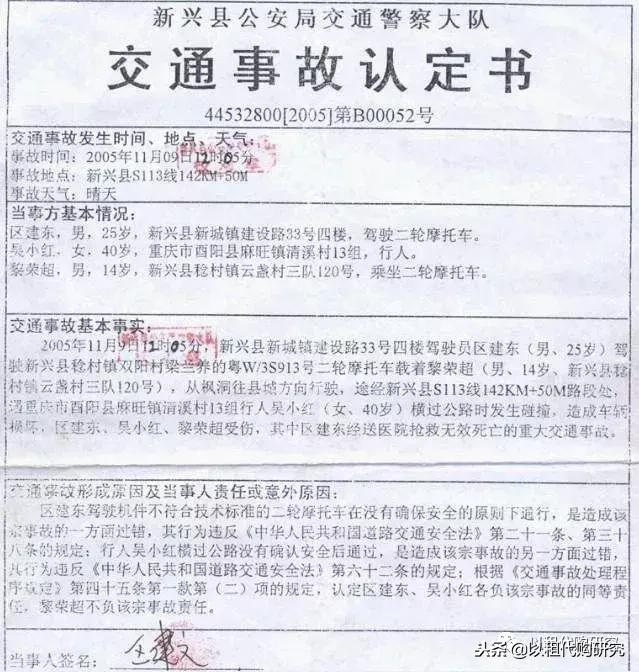 新兴县公安局交通警察大队
交通事故认定书
44532800[2005]第B00052号
交通事故发生时间、地点、天气:
事故时间:2005年11月09日12时05分
事故地点:新兴县S113线142KM+50M
事故天气:晴天
当事方基本情况:
区建东,男,25岁,新兴县新城镇建设路33号四楼,驾驶二轮摩托车。
吴小红,女,40岁,重庆市酉阳县麻旺镇清溪村13组,行人。
黎荣超,男,14岁,新兴县稔村镇云盏村三队120号,乘坐二轮摩托车。
交通事故基本事实:
2005年11月9日12时05分,新兴县新城镇建设路33号四楼驾驶员区建东(男、25岁)驾
驶新兴县稔村镇双阳村梁兰养的粤W/3S913号二轮摩托车载着黎荣超(男、14岁、新兴县稔
村镇云盏村三队120号),从枫洞往县城方向行驶,途经新兴县S113线142KM+50M路段处,
遇重庆市酉阳县麻旺镇清溪村13组行人吴小红(女、40岁)横过公路时发生碰撞,造成车辆
损坏,区建东、吴小红、黎荣超受伤,其中区建东经送医院抢救无效死亡的重大交通事故。
交通事故形成原因及当事人责任或意外原因:
区建东驾驶机件不符合技术标准的二轮摩托车在没有确保安全的原则下通行,是造成该
宗事故的一方面过错,其行为违反《中华人民共和国道路交通安全法》第二十一条、第三十
八条的规定;行人吴小红横过公路没有确认安全后通过,是造成该宗事故的另一方面过错,
其行为违反《中华人民共和国道路交通安全法》第六十二条的规定;根据《交通事故处理程
序规定》第四十五条第一款第(二)项的规定,认定区建东、吴小红各负该宗事故的同等责
任,黎荣超不负该宗事故责任。
当事人签名:
头条@以租代购研究